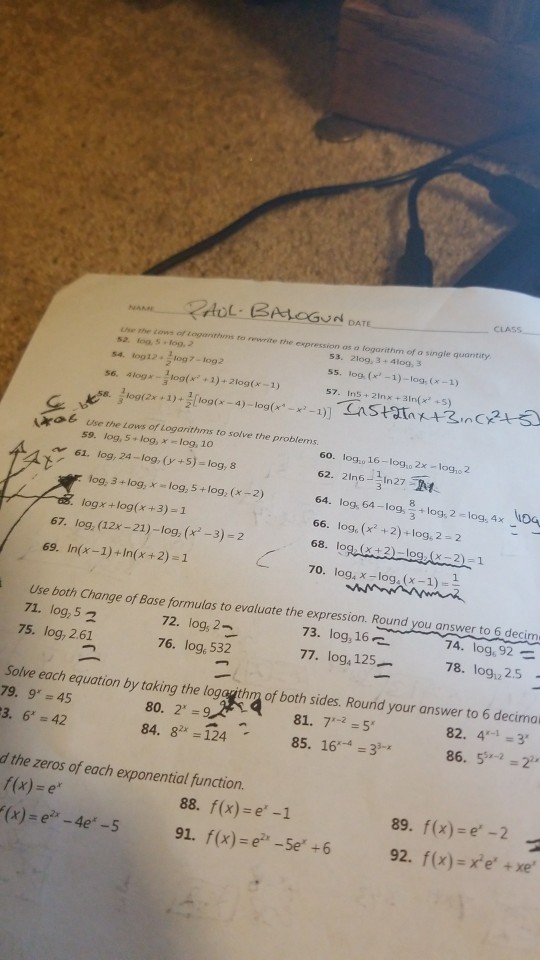 NAME PAUL. BALOGUN DATE CLASS
Use the Laws of Logarithms to rewrite the expression as a logarithm of a single quantity.
53. 2log, 3 + 4log, 3
54. log12 + 1/2 log7 – log2
55. log, (x² – 1) – log, (x – 1)
56. 4logx – 1/3 log(x² + 1) + 2log(x – 1)
57. ln5 + 2lnx + 3ln(x² + 5)
58. 1/3 log(2x + 1) + 1/2 [log(x – 4) – log(x⁴ – x² – 1)] In5+2Inx+3In(x²+5)
Use the Laws of Logarithms to solve the problems.
59. log, 5 + log, x = log, 10
60. log₁₀ 16 – log₁₀ 2x = log₁₀ 2
61. log, 24 – log, (y + 5) = log, 8
62. 2ln6 – 1/3 ln27 =
log, 3 + log, x = log, 5 + log, (x – 2)
64. log₅ 64 – log₅ 8/3 + log₅ 2 = log₅ 4x
logx + log(x + 3) = 1
66. log₆ (x² + 2) + log₆ 2 = 2
67. log, (12x – 21) – log, (x² – 3) = 2
68. log, (x + 2) – log, (x – 2) = 1
69. ln(x – 1) + ln(x + 2) = 1
70. log₄ x – log₄ (x – 1) = 1/2
Use both Change of Base formulas to evaluate the expression. Round you answer to 6 decim
71. log, 5
72. log, 2
73. log, 16
74. log₆ 92
75. log, 2.61
76. log₆ 532
77. log₄ 125
78. log₁₂ 2.5
Solve each equation by taking the logarithm of both sides. Round your answer to 6 decima
79. 9ˣ = 45
80. 2ˣ = 9
81. 7ˣ⁻² = 5ˣ
82. 4ˣ⁻¹ = 3ˣ
3. 6ˣ = 42
84. 8²ˣ = 124
85. 16ˣ⁻⁴ = 3³⁻ˣ
86. 5⁵ˣ⁻² = 2²ˣ
d the zeros of each exponential function.
f(x) = eˣ
88. f(x) = eˣ – 1
89. f(x) = eˣ – 2
f(x) = e²ˣ – 4eˣ – 5
91. f(x) = e²ˣ – 5eˣ + 6
92. f(x) = x²eˣ + xeˣ